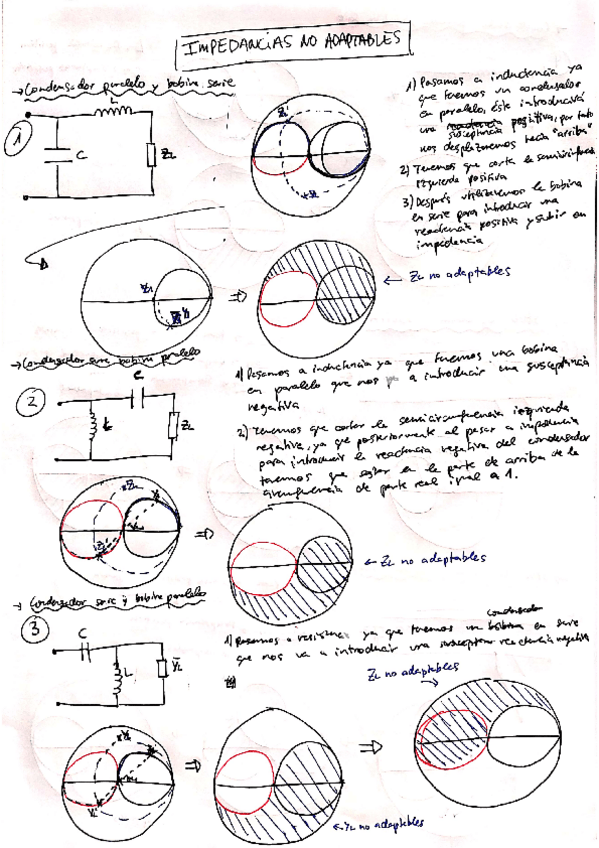 IMPEDANCIAS NO ADAPTABLES
→ Condensador paralelo y bobina serie
1
L
C
ZL
1) Pasamos a inductencia ya
que tenemos un condensador
en paralelo, éste introducirá
una susceptancia positiva, por tanto
nos desplazaremos hacia "arriba"
2) Tenemos que corte la semicircunferencia
izquierda positiva
3) Después utilizaremos la bobina
en serie para introducir una
reactancia positiva y subir en
impedancia
⇒
← ZL no adaptables
→ Condensador serie bobina paralelo
2
C
ZL
1) Pasamos a inductencia ya que tenemos una bobina
en paralelo que nos va a introducir una susceptancia
negativa
2) Tenemos que cortar la semicircunferencia izquierda
negativa, ya que posteriormente al pasar a impedancia
para introducir la reactancia negativa del condensador
tenemos que estar en la parte de arriba de la
circunferencia de parte real igual a 1.
ZL
⇒
← ZL no adaptables
→ Condensador serie y bobina paralelo
3
C
L
YL
1) Pasamos a resistencia ya que tenemos una condensador en serie
que nos va a introducir una reactancia negativa
ZL no adaptables
⇒
⇒
← YL no adaptables